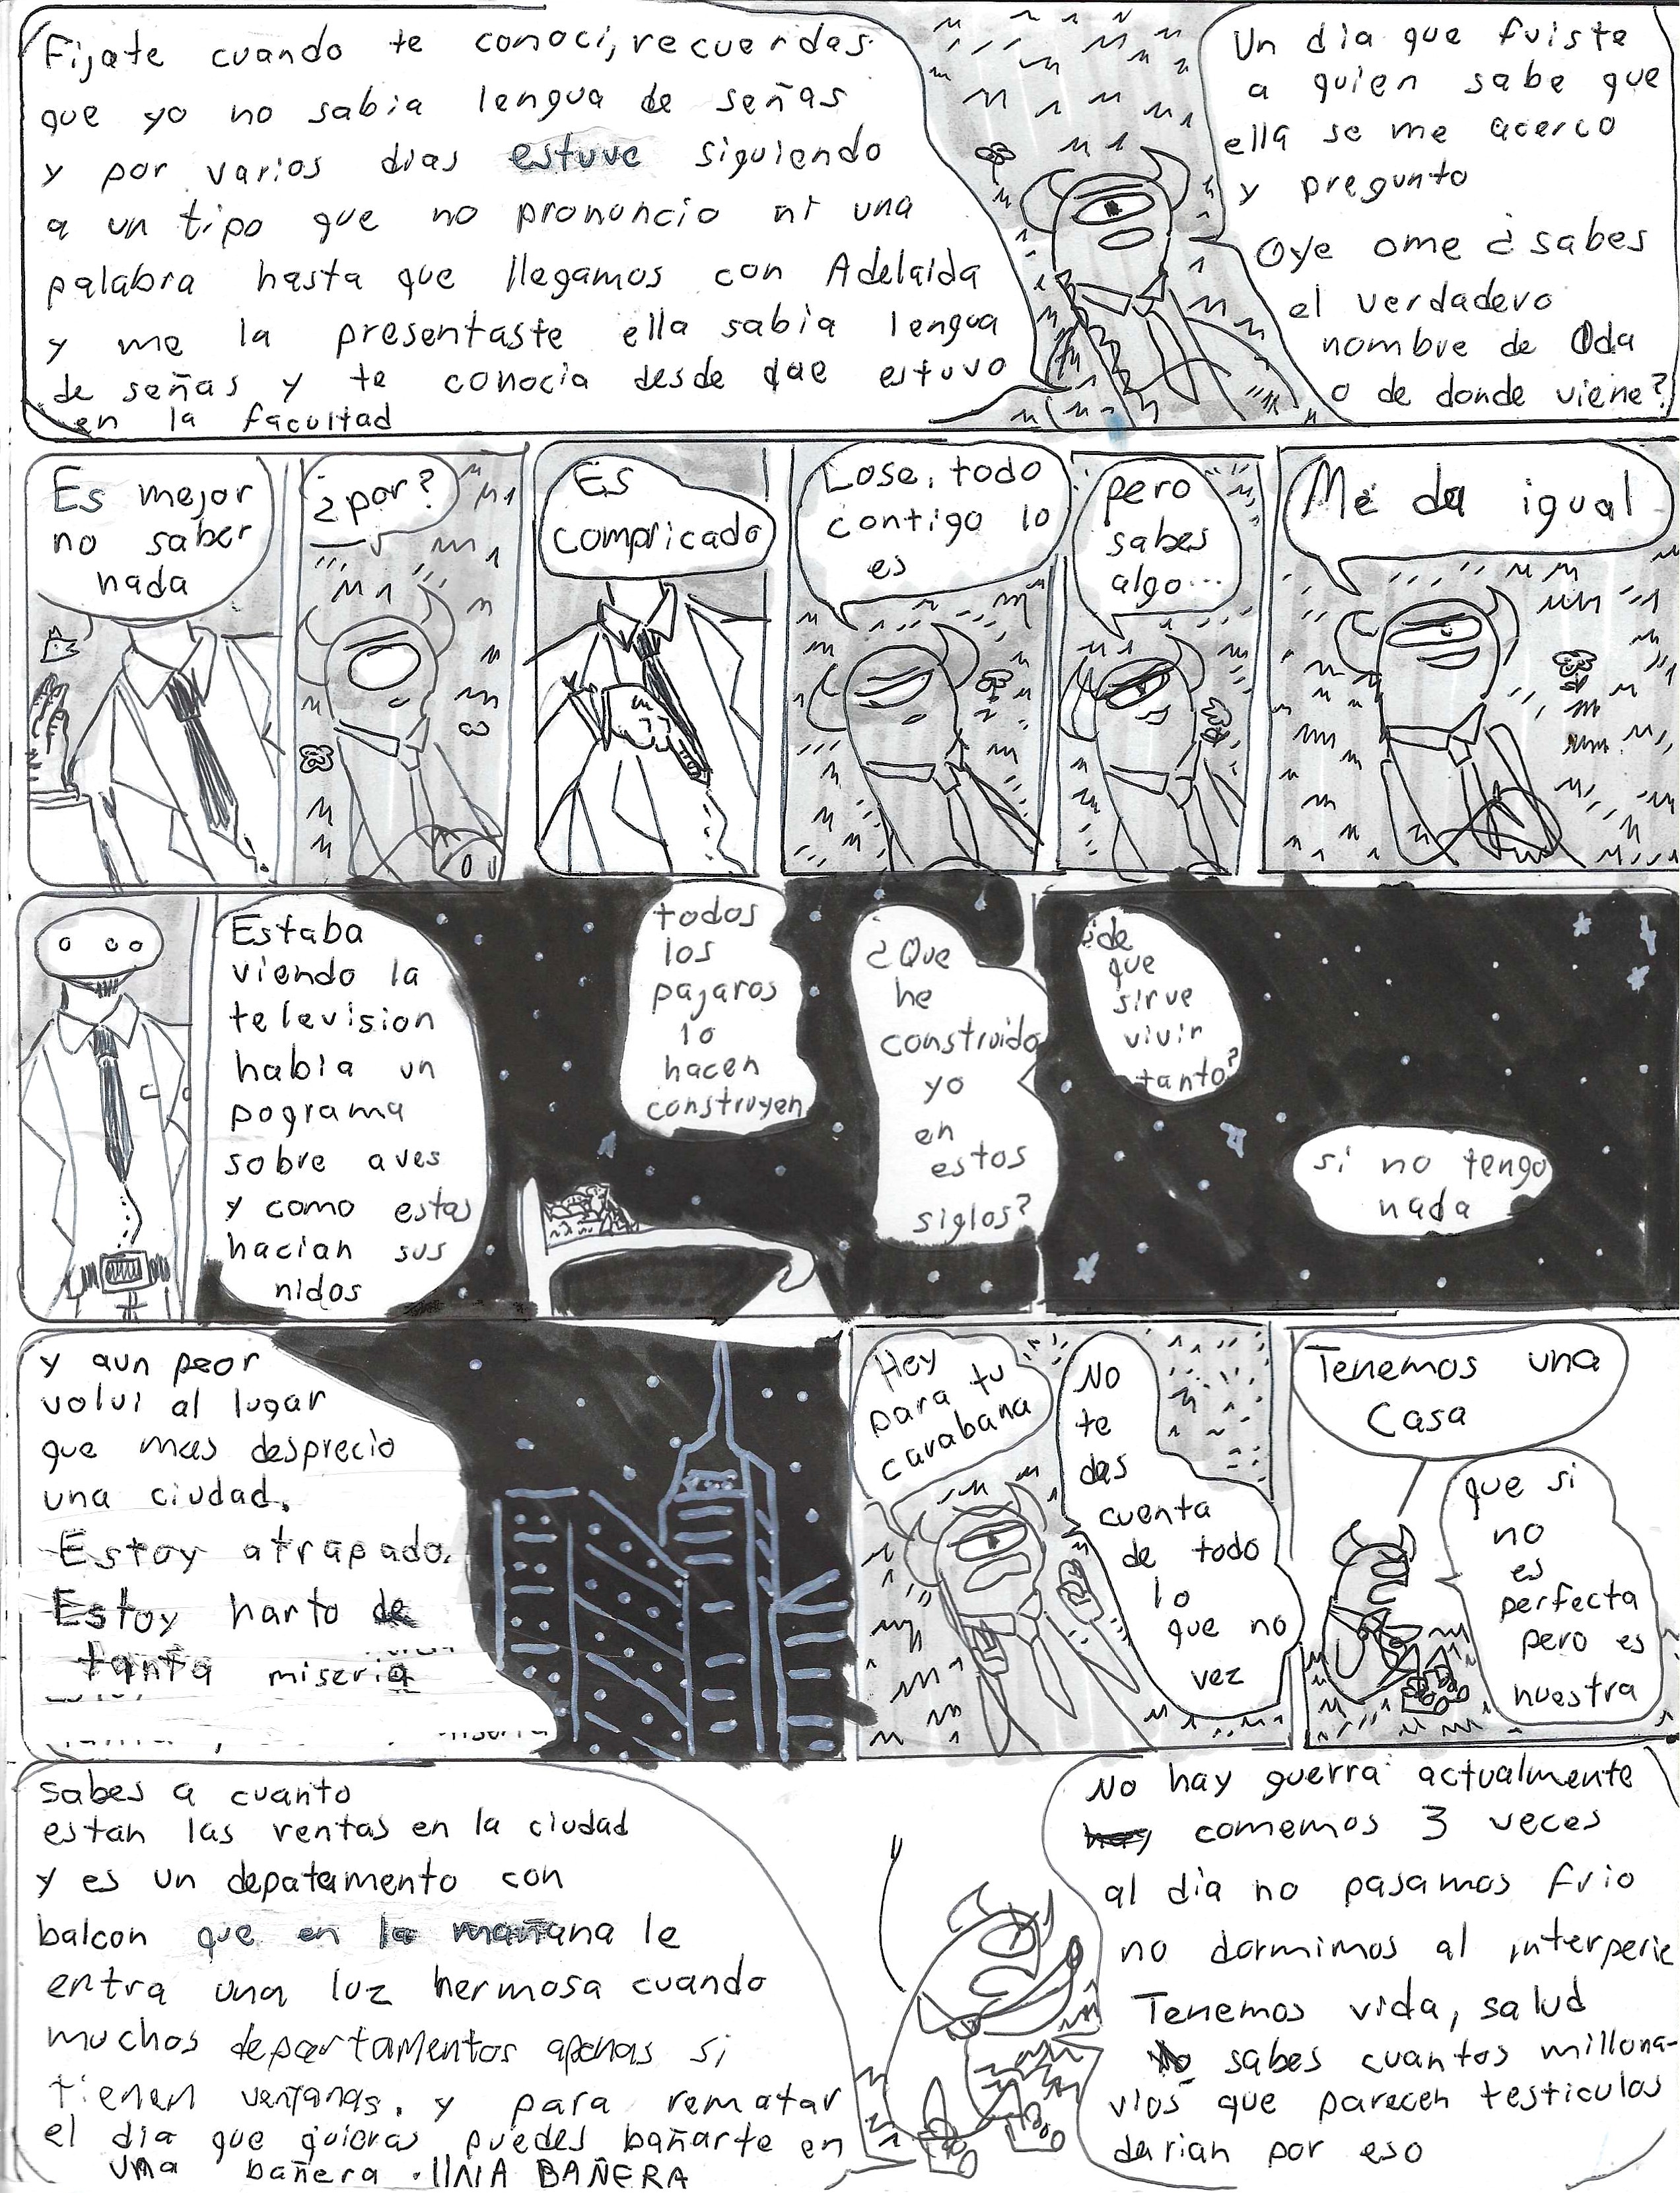 Fijate cuando te conoci, recuerdas
que yo no sabia lengua de señas
y por varios dias estuve siguiendo
a un tipo que no pronuncio ni una
palabra hasta que llegamos con Adelaida
y me la presentaste ella sabia lengua
de señas y te conocia desde que estuvo
en la facultad
Un dia que fuiste
a quien sabe que
ella se me acerco
y pregunto
Oye ome ¿sabes
el verdadero
nombre de Oda
o de donde viene?
Es mejor
no saber
nada
¿por?
Es
compricado
Lose, todo
contigo lo
es
pero
sabes
algo...
Me da igual
Estaba
viendo la
television
habia un
pograma
sobre aves
y como estas
hacian sus
nidos
todos
los
pajaros
lo
hacen
construyen
¿Que
he
construido
yo
en
estos
siglos?
¿de
que
sirve
vivir
tanto?
si no tengo
nada
y aun peor
volvi al lugar
que mas desprecio
una ciudad.
Estoy atrapado.
Estoy harto de
tanta miseria
Hey
para tu
carabana
No
te
das
cuenta
de todo
lo
que no
vez
Tenemos una
Casa
que si
no
es
perfecta
pero es
nuestra
sabes a cuanto
estan las rentas en la ciudad
y es un depatamento con
balcon que en la mañana le
entra una luz hermosa cuando
muchos departamentos apenas si
tienen ventanas. y para rematar
el dia que quieras puedes bañarte en
una bañera. UNA BAÑERA
No hay guerra actualmente
comemos 3 veces
al dia no pasamos frio
no dormimos al interperie
Tenemos vida, salud
sabes cuantos millona-
rios que parecen testiculos
darian por eso